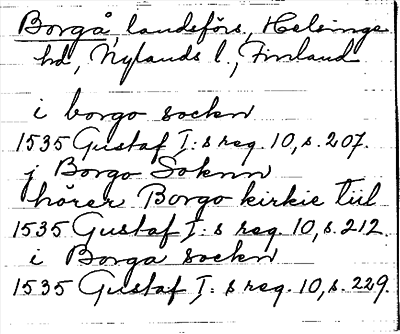 Borgå, landsförs., Helsinge
hd, Nylands l., Finland
i borgo sockn
1535 Gustaf I:s reg. 10, s. 207.
j Borgo Soknn
hörer Borgo kirkie tiil
1535 Gustaf I:s reg. 10, s. 212.
i Borga sockn
1535 Gustaf I:s reg. 10, s. 229.